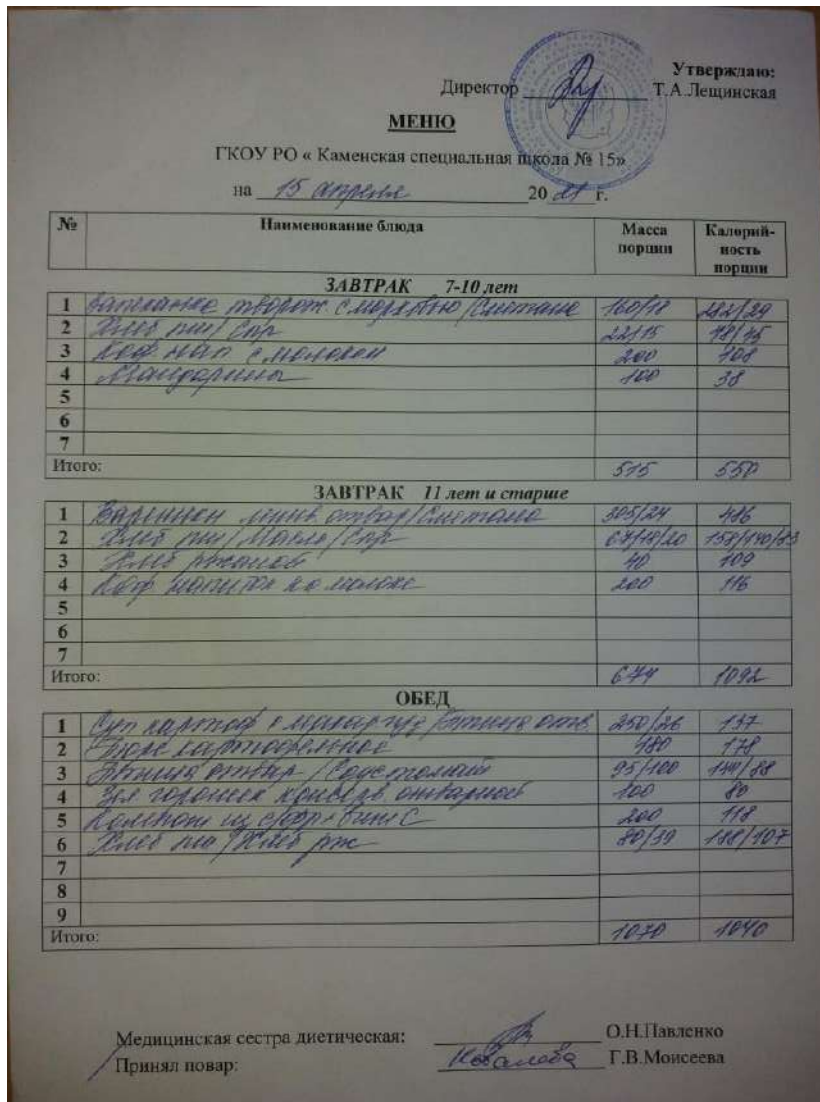 Утверждаю:
Директор Т.А.Лещинская
МЕНЮ
ГКОУ РО « Каменская специальная школа № 15»
на 15 апреля 20 21 г.
№ Наименование блюда Масса порции Калорий-ность порции
ЗАВТРАК 7-10 лет
1 Запеканка творож с морковью /Сметана 160/18 282/29
2 Хлеб пш/ Сыр 22/15 48/45
3 Коф нап с молоком 200 108
4 Мандарины 100 38
5
6
7
Итого: 515 550
ЗАВТРАК 11 лет и старше
1 Вареники отвар/Сметана 305/24 486
2 Хлеб пш/ Масло/ Сыр 67/18/20 158/140/83
3 Хлеб ржаной 40 109
4 Коф напиток на молоке 200 116
5
6
7
Итого: 674 1092
ОБЕД
1 Суп картоф с макар /птица отв. 250/26 137
2 Пюре картофельное 180 178
3 Птица отвар /Соус томатн 95/100 144/88
4 Зел горошек консерв отварной 100 80
5 Компот из с/фр+вит С 200 118
6 Хлеб пш /Хлеб рж 80/39 188/107
7
8
9
Итого: 1070 1040
Медицинская сестра диетическая: О.Н.Павленко
Принял повар: Г.В.Моисеева